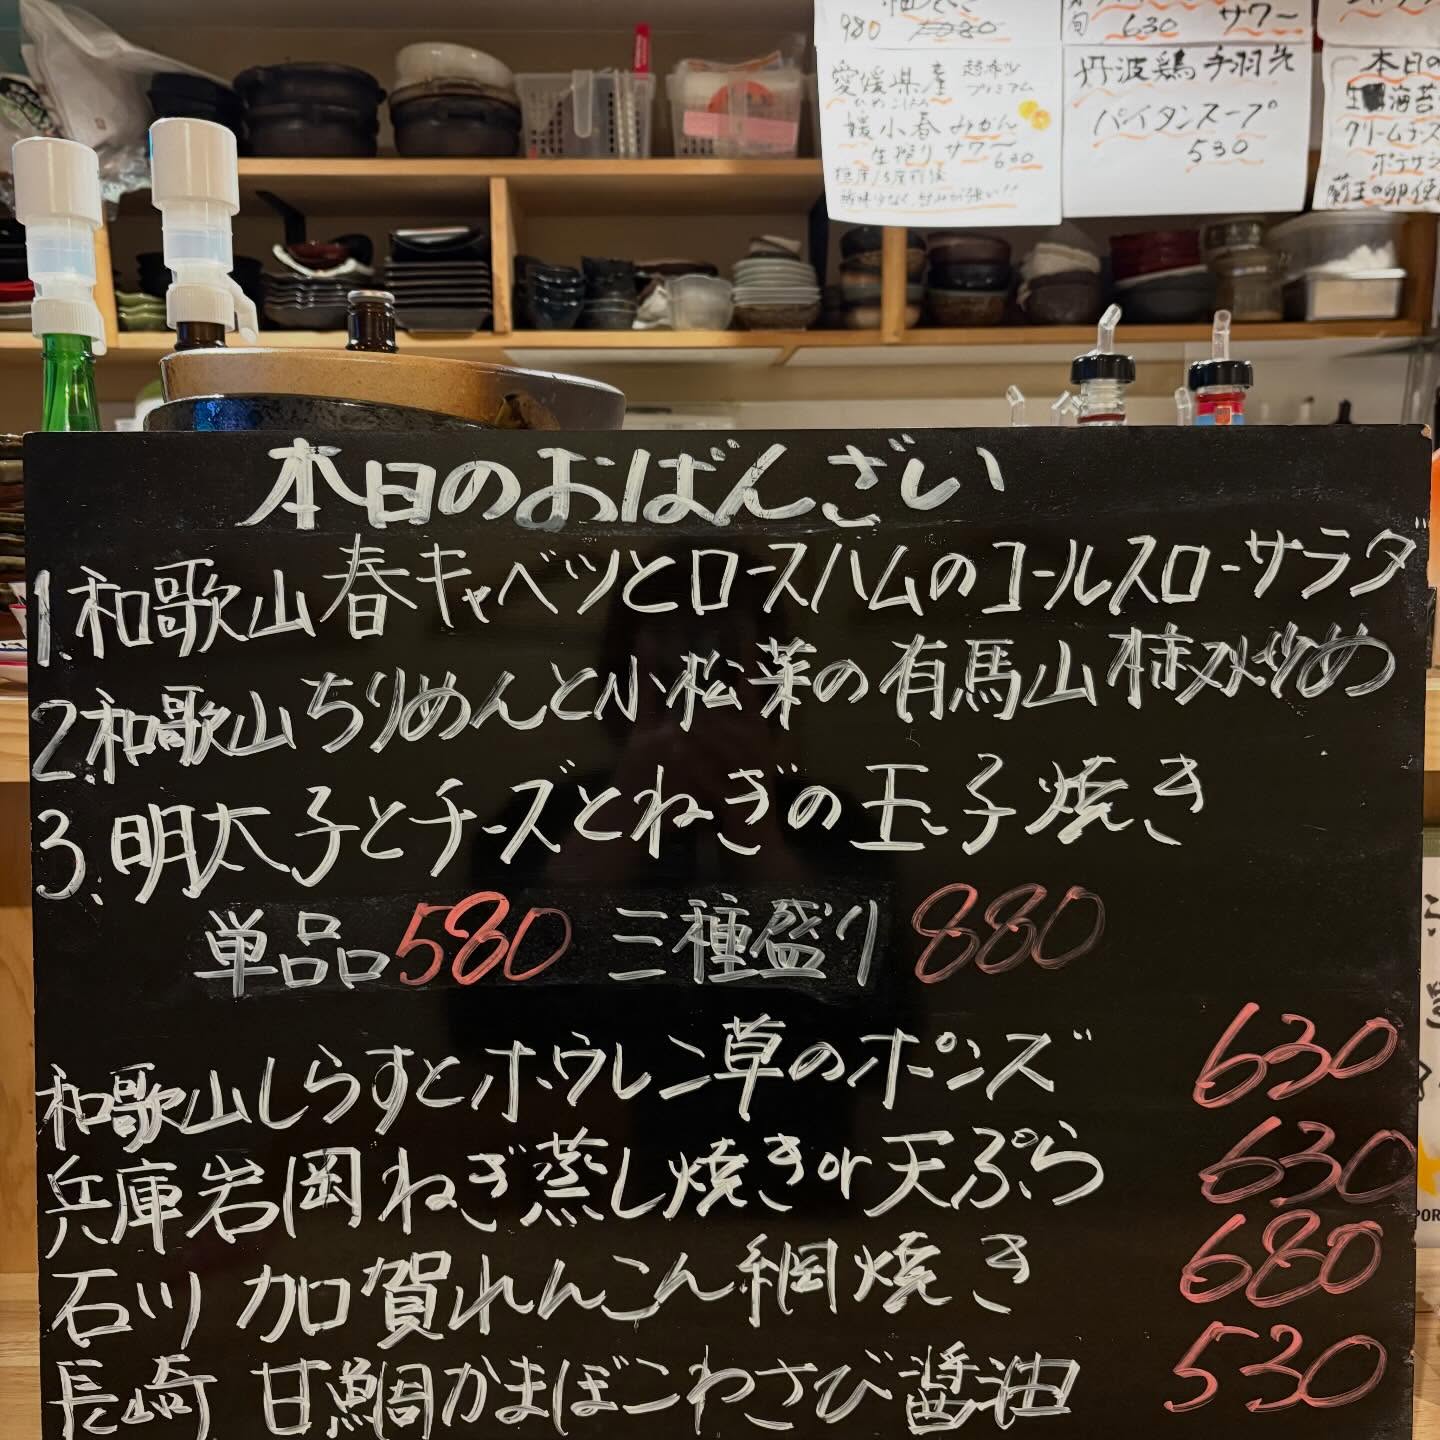 980
630 サワー
愛媛県産
ひめこはる
媛小春 みかん
生搾り サワー
630
プレミアム
丹波鶏 手羽先
パイタンスープ
530
本日の
海苔
クリームチーズ
ポテサ
蘭王の卵使
本日のおばんざい
1.和歌山春キャベツとロースハムのコールスローサラダ
2.和歌山ちりめんと小松菜の有馬山椒炒め
3.明太子とチーズとねぎの玉子焼き
単品580 三種盛り 880
和歌山しらすとホウレン草のポンズ 630
兵庫岩岡ねぎ蒸し焼きor天ぷら 630
石川 加賀れんこん網焼き 680
長崎 甘鯛かまぼこわさび醤油 530